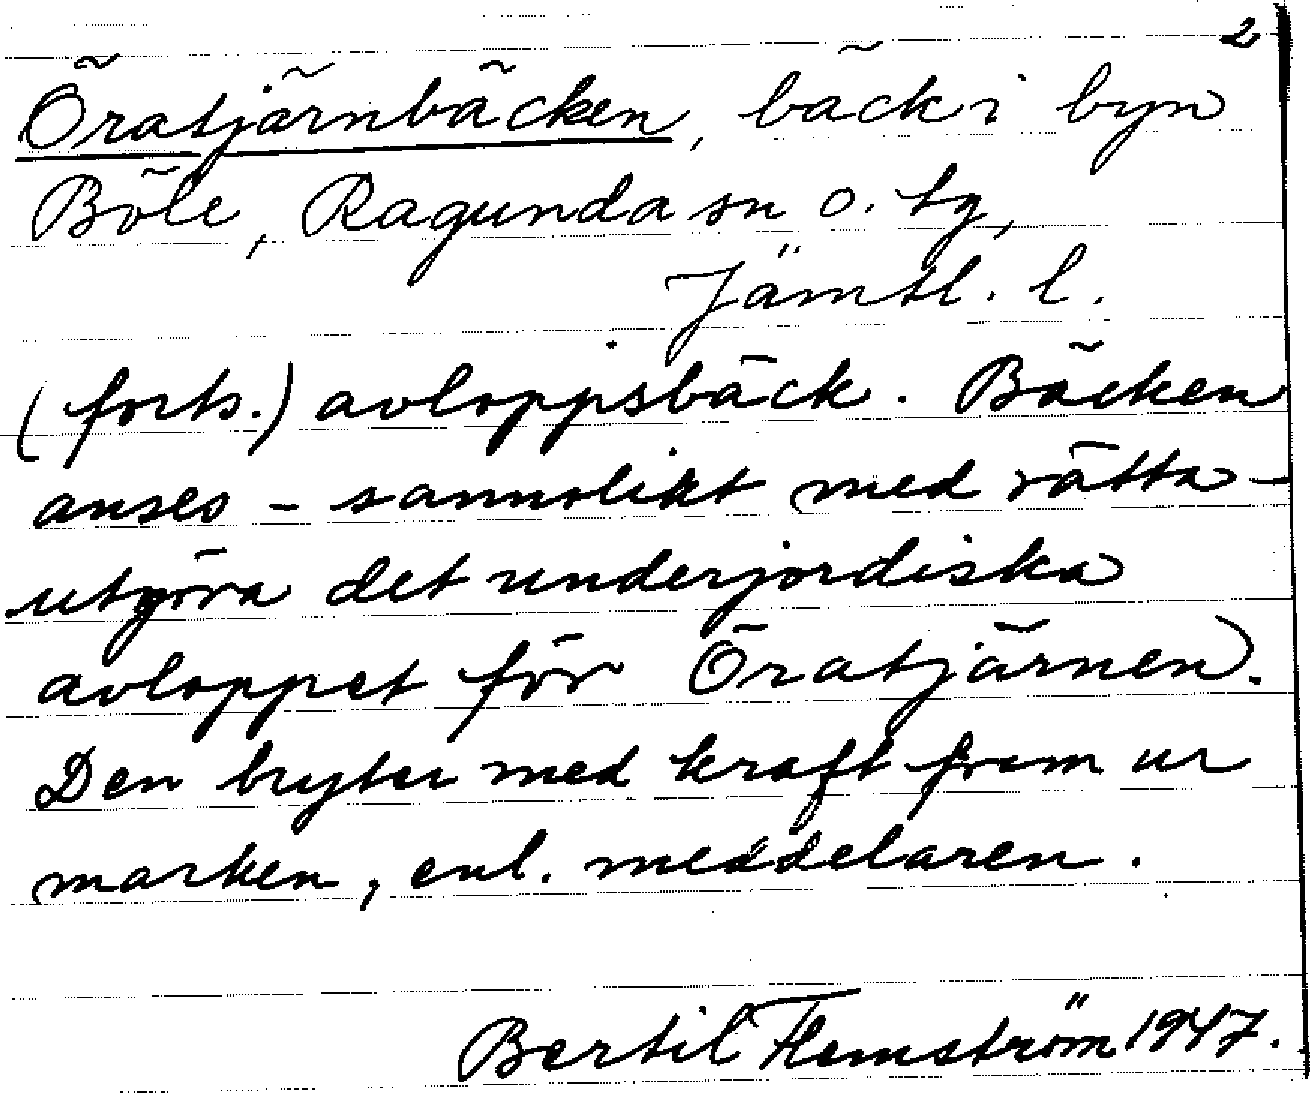 2
Öratjärnbäcken, bäck i byn
Böle, Ragunda sn o. tg,
Jämtl. l.
(forts.) avloppsbäck. Bäcken
anses – sannolikt med rätta –
utgöra det underjordiska
avloppet för Öratjärnen.
Den bryter med kraft fram ur
marken, enl. meddelaren.
Bertil Flemström 1947.